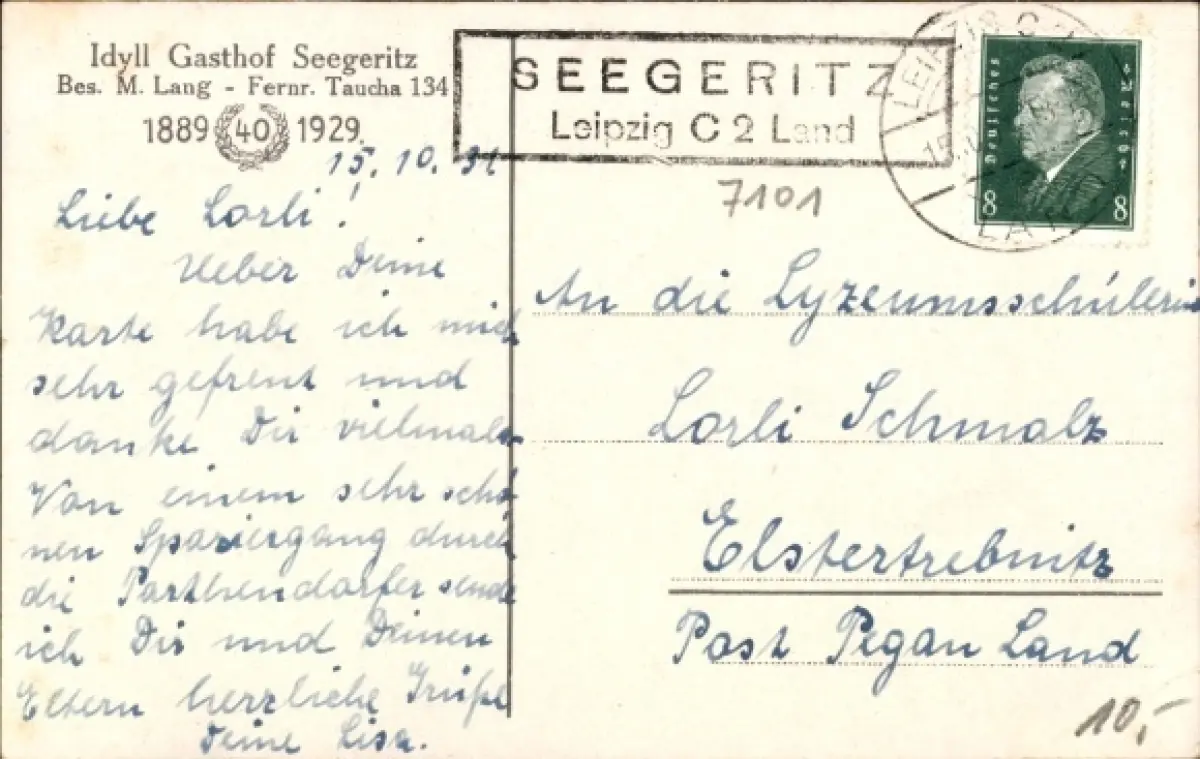 Idyll Gasthof Seegeritz
Bes. M. Lang - Fernr. Taucha 134
1889 40 1929.
SEEGERITZ
Leipzig C 2 Land
LEIPZIG C 2
15.
LAND
Deutsches Reich
8 8
7101
15. 10. 31
Liebe Lorli!
Ueber Deine
Karte habe ich mich
sehr gefreut und
danke Dir vielmals.
Von einem sehr schö-
nen Spaziergang durch
die Parthendörfer sende
ich Dir und Deinen
Eltern herzliche Grüße
Deine Lisa.
An die Lyzeumsschülerin
Lorli Schmalz
Elstertrebnitz
Post Pegau Land
10,-